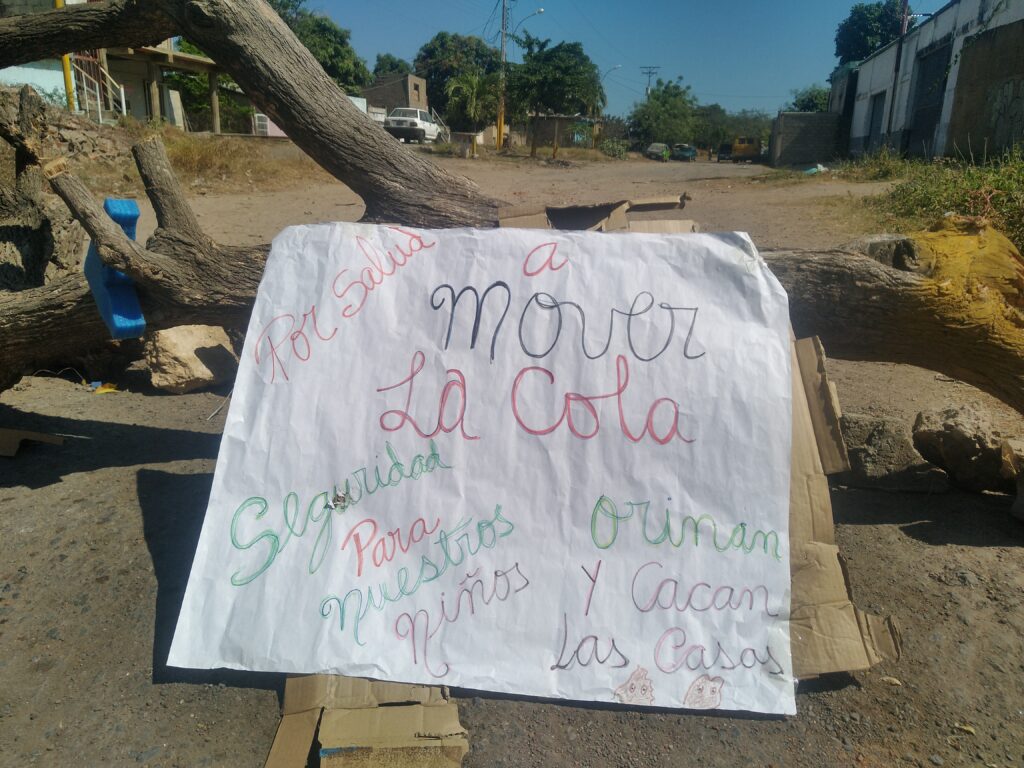 Por Salud
a
Mover
La Cola
Seguridad
Para
nuestros
niños
Orinan
y Cacan
Las Casas